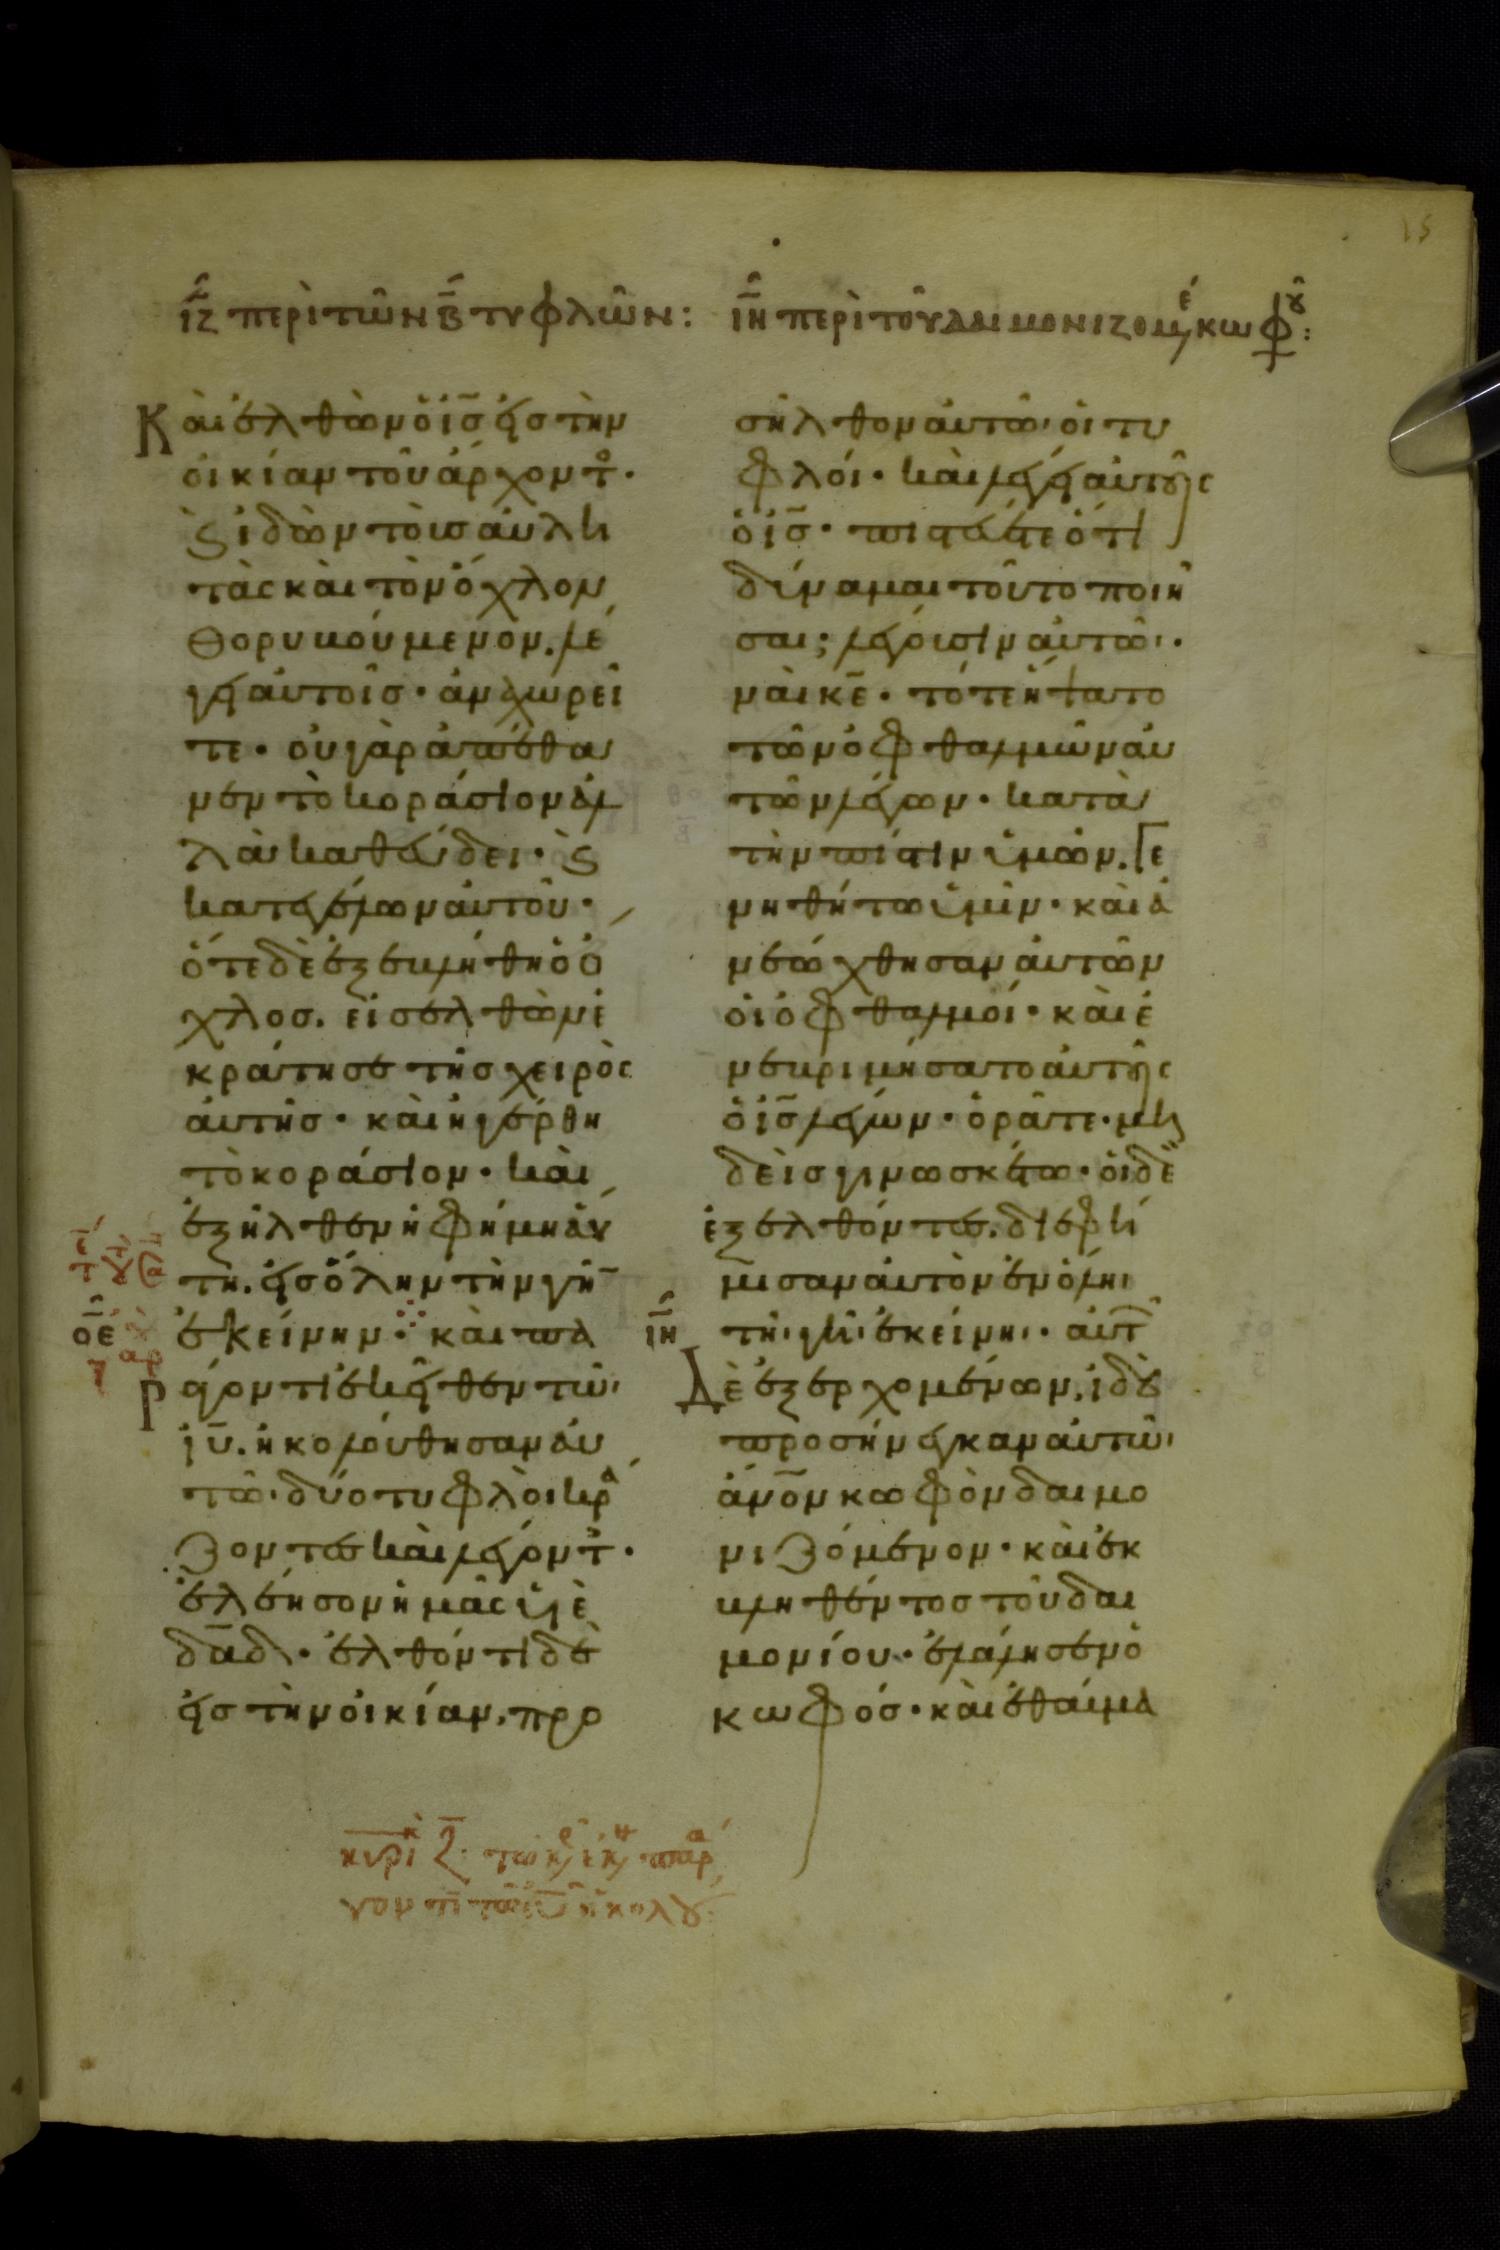 ιζ περὶ τῶν β τυφλῶν:
ιη περὶ τοῦ δαιμονιζομέ κωφοῦ:
Κὰι ἐλθὼν ὁ ις εἰς τὴν
οἰκίαν τοῦ ἄρχοντο·
ϗ ἰδὼν τοὺσ ἀυλη
τὰς κὰι τὸν ὄχλον
θορυβούμενον. λέ
γει ἀυτοῖσ· ἀναχωρεῖ
τε· ὀυ γὰρ ἀπέθα
νεν τὸ κοράσιον ἀλ
λὰ καθεύδει· ϗ
κατεγέλων ἀυτοῦ·
ὅτε δὲ ἐξεβλήθη ὁ ὄ
χλοσ. εἰσελθὼν ἐ
κράτησε τῆσ χειρὸς
ἀυτῆσ· κὰι ἠγέρθη
τὸ κοράσιον· κὰι
ἐξῆλθεν ἡ φήμη ἁύ
τη. εἰσ ὅλην τὴν γῆ
ἐκείνην· κὰι πα
ράγοντι ἐκεῖθεν τῶι
ιυ. ἠκολούθησαν ἀυ
τῶι δύο τυφλὸι κρά
ζοντεσ κὰι λέγοντ·
ἐλέησον ἡμᾶς υἱὲ
δαδ· ἐλθόντι δὲ
εἰσ τὴν οἰκίαν. προ
σῆλθον ἀυτῶι οἱ τυ
φλόι· κὰι λέγει ἀυτοῖς
ὁ ις· πιστεύετε ὅτι
δύναμαι τοῦτο ποιῆ
σαι; λέγουσιν ἀυτῶι·
νὰι κε· τότε ἥψατο
τῶν ὀφθαλμῶν ἀυ
τῶν λέγων· κατὰ
τὴν πίστιν ὑμῶν. γε
νηθήτω ὑμῖν· κὰι ἀ
νεώχθησαν ἀυτῶν
οἱ ὀφθαλμόι· κὰι ἐ
νεβριμήσατο ἀυτοῖς
ὁ ις λέγων· ὁρᾶτε· μη
δεὶσ γινωσκέτω· ὁι δὲ
ἐξελθόντεσ. διεφή
μισαν ἀυτὸν ἐν ὅληι
τῆι γῆι ἐκείνηι· ἀυτ
ιη
Δὲ ἐξερχομένων. ἰδοὺ
προσήνεγκαν ἀυτῶι
ἄνον κωφὸν δαιμο
νιζόμενον· κὰι ἐκ
βληθέντοσ τοῦ δαι
μονίου· ἐλάλησεν ὁ
κωφόσ· κὰι ἐθαύμα
οε
κυρι ζ τῶ κ ἐκ παρά
γον τι τῶ ιυ ἠκολού